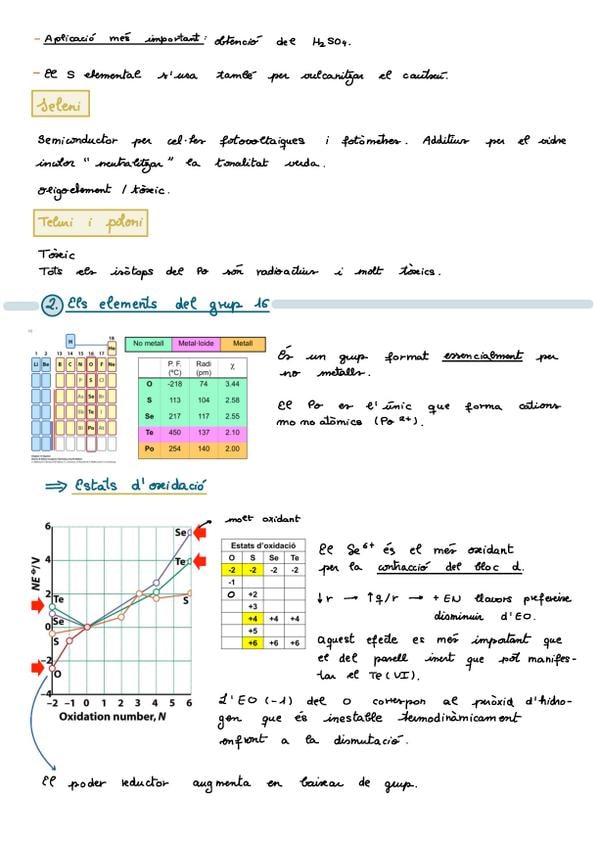 - Aplicació més important: obtenció del H2SO4.
- El S elemental s'usa també per vulcanitzar el cautxú.
Seleni
Semiconductor per cel·les fotovoltaiques i fotòmetres. Additius per el vidre
incolor "neutralitzar" la tonalitat verda.
oligoelement / tòxic.
Tel·luri i poloni
Tòxic
Tots els isòtops del Po són radioactius i molt tòxics.
2. Els elements del grup 16
1 2 13 14 15 16 17 18
H He
Li Be B C N O F Ne
P S Cl
As Se Br
Sb Te I
Bi Po At
No metall Metal·loide Metall
P. F. (ºC) Radi (pm) χ
O -218 74 3.44
S 113 104 2.58
Se 217 117 2.55
Te 450 137 2.10
Po 254 140 2.00
És un grup format essencialment per
no metalls.
El Po es l'únic que forma cations
monoatòmics (Po2+).
⇒ Estats d'oxidació
NEº/V
6
4
2
0
-2
-4
Se
Te
S
Te
Se
S
O
-2 -1 0 1 2 3 4 5 6
Oxidation number, N
molt oxidant
Estats d'oxidació
O S Se Te
-2 -2 -2 -2
-1
0 +2
+3
+4 +4 +4
+5
+6 +6 +6
El Se6+ és el més oxidant
per la contracció del bloc d.
↓r → ↑q/r → + EN llavors prefereix
disminuir d'EO.
Aquest efecte es més important que
el del parell inert que pot manifes-
tar el Te(VI).
L'EO (-1) del O correspon al peròxid d'hidro-
gen que és inestable termodinàmicament
enfront a la dismutació.
El poder reductor augmenta en baixar de grup.